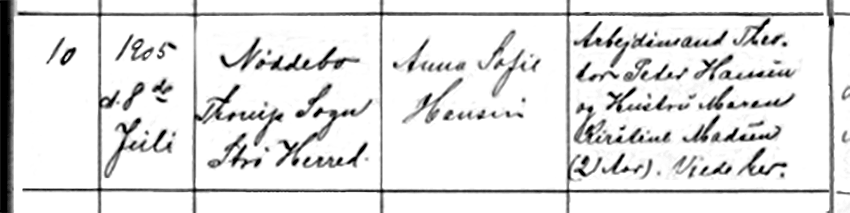 10
1905
d. 8de
Juli
Nøddebo
Thorup Sogn
Strø Herred.
Anna Sofie
Hansen
Arbejdsmand Theo-
dor Peter Hansen
og Hustru Maren
Kirstine Madsen
(21 Aar). Viede her.